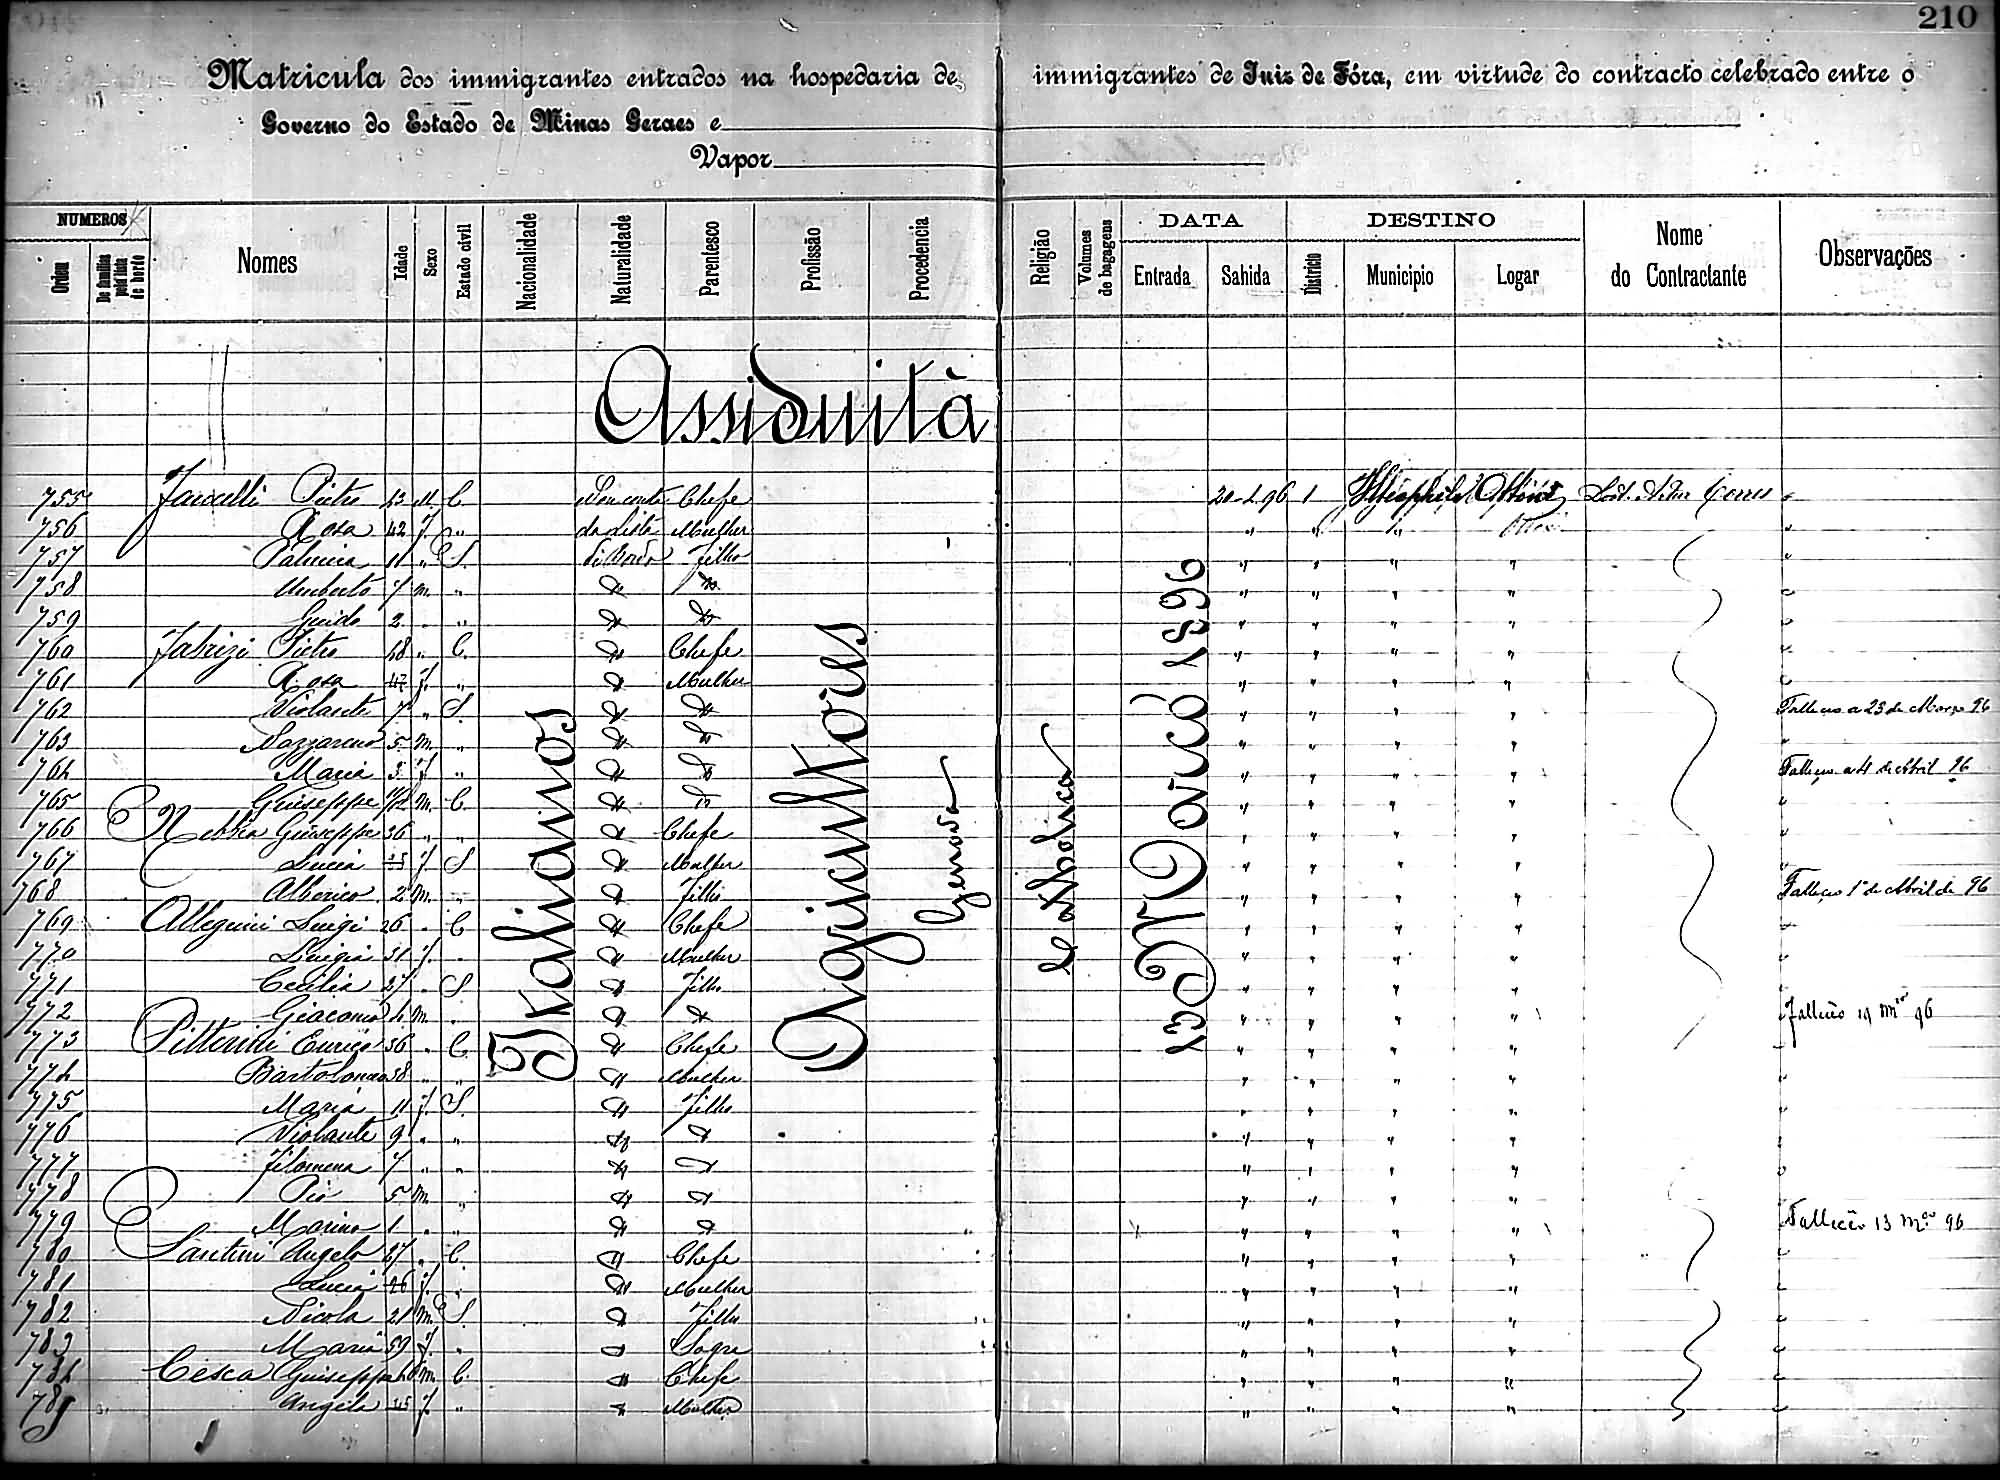 210
Matricula dos immigrantes entrados na hospedaria de immigrantes de Juiz de Fóra, em virtude do contracto celebrado entre o
Governo do Estado de Minas Geraes e
Vapor
NUMEROS DATA DESTINO
Ordem De familias pela lista de bordo Nomes Idade Sexo Estado civil Nacionalidade Naturalidade Parentesco Profissão Procedencia Religião Volumes de bagagens Entrada Sahida Districto Municipio Logar Nome do Contractante Observações
Assiduità
Italianos
Agricultores
Genova
Catholica
13 Março 1896
755 Pietro 43 M. C. Chefe 20-4-96 1
756 Rosa 42 f. " da lista Mulher " " "
757 Palmira 11 " S. di Bordo Filho " " " "
758 Umberto 7 m. " " " " " " "
759 Guido 2 " " " " " " " "
760 Fabrizi Pietro 48 " C. " Chefe " " " "
761 Rosa 47 f. " " Mulher " " " "
762 Violante 7 " S. " " " " " " Falleceo a 23 de Março 96
763 Nazzareno 5 m. " " " " " " "
764 Maria 3 f. " " " " " " " Falleceo a 4 de Abril 96
765 Giuseppe m. C. " " " " " "
766 Nebbia Giuseppe 36 " " " Chefe " " " "
767 Lucia 35 f. S " Mulher " " " "
768 Alberico 2 m. " " Filho " " " " Falleceo 1º de Abril de 96
769 Allegrini Luigi 26 " C " Chefe " " " "
770 Luigia 31 f. " " Mulher " " " "
771 Cecilia 27 " S " Filho " " " "
772 Giacomo 4 m. " " " " " " " Falleceo 19 Mço 96
773 Enrico 36 " C. " Chefe " " " "
774 Bartolomea 38 " " " Mulher " " " "
775 Maria 11 f. S. " Filho " " " "
776 Violante 9 " " " " " " " "
777 Filomena 7 " " " " " " " "
778 Pio 5 m. " " " " " " "
779 Marino 1 " " " " " " " " Falleceo 13 Mço 96
780 Santini Angelo 47 " C. " Chefe " " " "
781 Lucia 46 f. " " Mulher " " " "
782 Nicola 21 m. S. " Filho " " " "
783 Maria 59 f. " " Sogra " " " "
784 Cesca Giuseppe m. C. " Chefe " " " "
785 Angela 45 f. " " Mulher " " " "